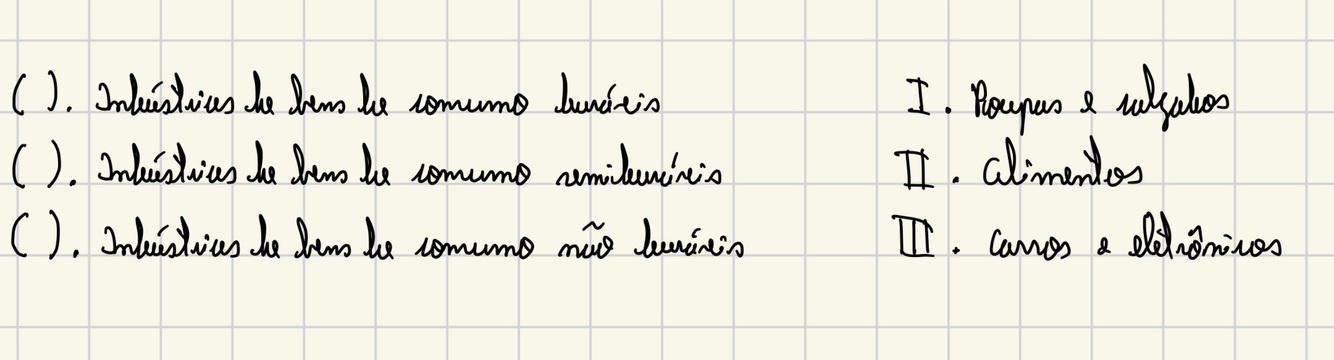 ( ). Indústrias de bens de consumo duráveis I. Roupas e calçados
( ). Indústrias de bens de consumo semiduráveis II. Alimentos
( ). Indústrias de bens de consumo não duráveis III. Carros e eletrônicos